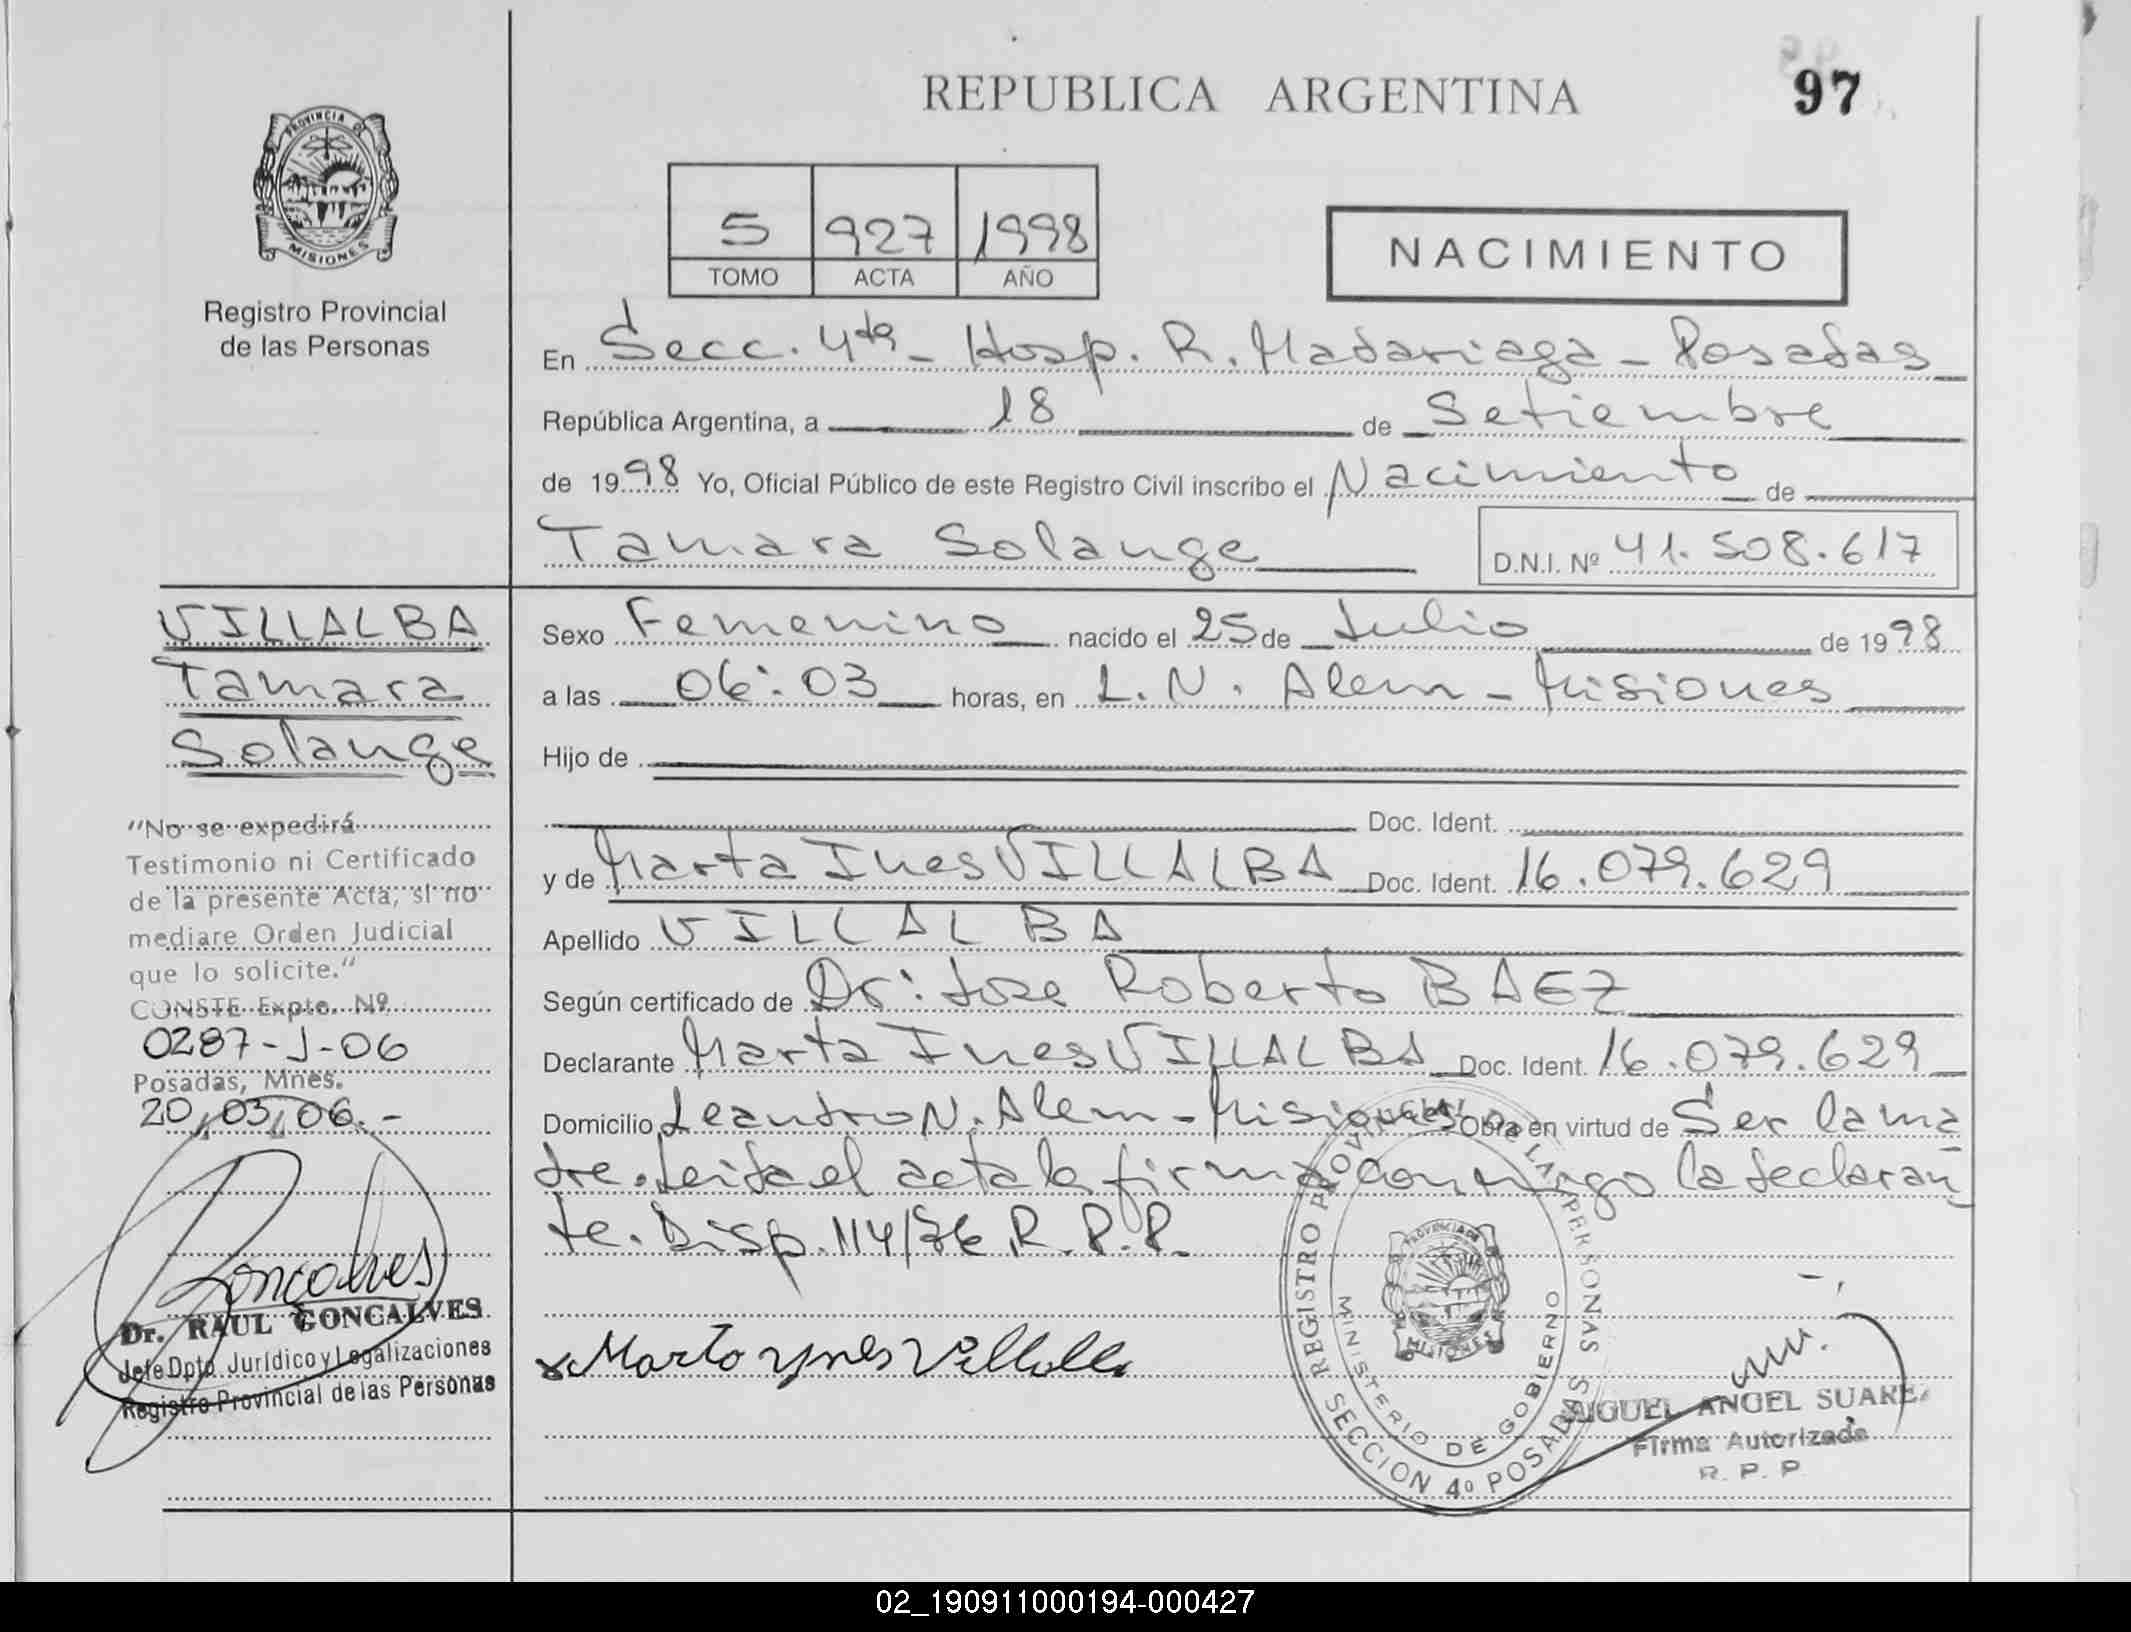 REPUBLICA ARGENTINA
97
PROVINCIA DE
MISIONES
Registro Provincial
de las Personas
5 927 1998
TOMO ACTA AÑO
NACIMIENTO
En Secc. 4ta - Hosp. R. Madariaga - Posadas
República Argentina, a 18 de Setiembre
de 1998 Yo, Oficial Público de este Registro Civil inscribo el Nacimiento de
Tamara Solange D.N.I. Nº 41.508.617
VILLALBA
Tamara
Solange
Sexo Femenino nacido el 25 de Julio de 1998
a las 06:03 horas, en L.N. Alem - Misiones
Hijo de
Doc. Ident.
y de Marta Ines VILLALBA Doc. Ident. 16.079.629
Apellido VILLALBA
Según certificado de Dr: Jose Roberto BAEZ
Declarante Marta Ines VILLALBA Doc. Ident. 16.079.629
Domicilio Leandro N. Alem - Misiones Obra en virtud de Ser la ma
dre. Leida el acta la firma conmigo la declaran
te. Disp. 114/76 R.P.P.
"No se expedirá
Testimonio ni Certificado
de la presente Acta, si no
mediare Orden Judicial
que lo solicite."
CONSTE Expte. Nº
0287-J-06
Posadas, Mnes.
20/03/06.-
Goncalves
Dr. RAUL GONCALVES
Jefe Dpto. Jurídico y Legalizaciones
Registro Provincial de las Personas
x Marta Ynes Villalba
REGISTRO PROVINCIAL DE LAS PERSONAS
MINISTERIO DE GOBIERNO
PROVINCIA DE
MISIONES
SECCION 4º POSADAS
MIGUEL ANGEL SUAREZ
Firma Autorizada
R. P. P.
02_190911000194-000427